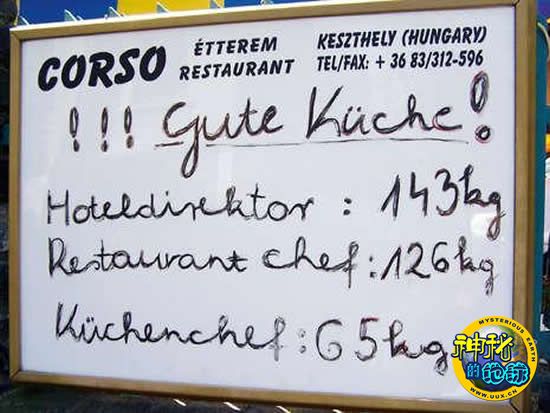 CORSO ÉTTEREM RESTAURANT KESZTHELY (HUNGARY)
TEL/FAX: + 36 83/312-596
!!! Gute Küche!
Hoteldirektor : 143kg
Restaurant chef : 126kg
Küchenchef : 65kg
MYSTERIOUS EARTH
神秘
的地球
WWW.UUX.CN